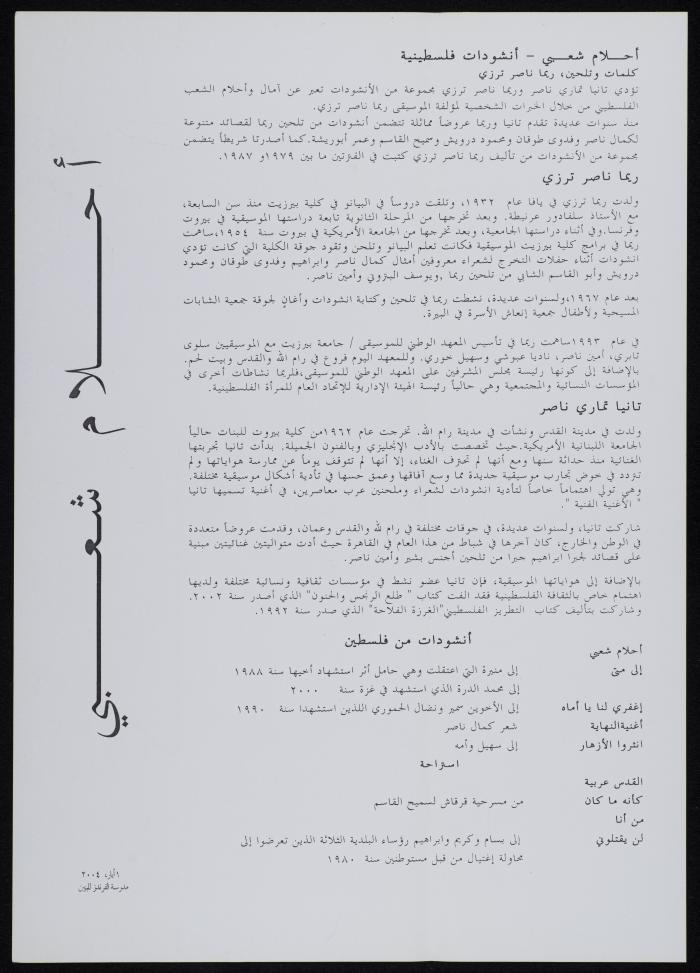 أحلام شعبي – أنشودات فلسطينية
كلمات وتلحين، ريما ناصر ترزي
تؤدي تانيا تماري ناصر وريما ناصر ترزي مجموعة من الأنشودات تعبر عن آمال وأحلام الشعب
الفلسطيني من خلال الخبرات الشخصية لمؤلفة الموسيقى ريما ناصر ترزي.
منذ سنوات عديدة تقدم تانيا وريما عروضاً مماثلة تتضمن أنشودات من تلحين ريما لقصائد متنوعة
لكمال ناصر وفدوى طوقان ومحمود درويش وسميح القاسم وعمر أبوريشة.كما أصدرتا شريطاً يتضمن
مجموعة من الأنشودات من تأليف ريما ناصر ترزي كتبت في الفترتين ما بين ١٩٧٩و ١٩٨٧.
ريما ناصر ترزي
ولدت ريما ترزي في يافا عام ١٩٣٢، وتلقت دروساً في البيانو في كلية بيرزيت منذ سن السابعة،
مع الأستاذ سلفادور عرنيطة. وبعد تخرجها من المرحلة الثانوية تابعة دراستها الموسيقية في بيروت
وفرنسا.وفي أثناء دراستها الجامعية، وبعد تخرجها من الجامعة الأمريكية في بيروت سنة ١٩٥٤،ساهمت
ريما في برامج كلية بيرزيت الموسيقية فكانت تعلم البيانو وتلحن وتقود جوقة الكلية التي كانت تؤدي
انشودات أثناء حفلات التخرج لشعراء معروفين أمثال كمال ناصر وابراهيم وفدوى طوقان ومحمود
درويش وأبو القاسم الشابي من تلحين ريما ,ويوسف البتروني وأمين ناصر.
بعد عام ١٩٦٧،ولسنوات عديدة، نشطت ريما في تلحين وكتابة انشودات وأغانٍ لجوقة جمعية الشابات
المسيحية ولأطفال جمعية إنعاش الأسرة في البيرة.
في عام ١٩٩٣ساهمت ريما في تأسيس المعهد الوطني للموسيقى / جامعة بيرزيت مع الموسيقيين سلوى
تابري، أمين ناصر، ناديا عبوشي وسهيل خوري. وللمعهد اليوم فروع في رام الله والقدس وبيت لحم.
بالإضافة إلى كونها رئيسة مجلس المشرفين على المعهد الوطني للموسيقى،فلريما نشاطات أخرى في
المؤسسات النسائية والمجتمعية وهي حالياً رئيسة الهيئة الإدارية للإتحاد العام للمرأة الفلسطينية.
تانيا تماري ناصر
ولدت في مدينة القدس ونشأت في مدينة رام الله. تخرجت عام ١٩٦٢من كلية بيروت للبنات حالياً
الجامعة اللبنانية الأمريكية.حيث تخصصت بالأدب الإنجليزي وبالفنون الجميلة. بدأت تانيا تجربتها
الغنائية منذ حداثة سنها ومع أنها لم تحترف الغناء، إلا أنها لم تتوقف يوماً عن ممارسة هواياتها ولم
تتردد في خوض تجارب موسيقية جديدة مما وسع آفاقها وعمق حسها في تأدية أشكال موسيقية مختلفة.
وهي تولي اهتماماً خاصاً لتأدية انشودات لشعراء وملحنين عرب معاصرين، في أغنية تسميها تانيا
" الأغنية الفنية ".
شاركت تانيا، ولسنوات عديدة، في جوقات مختلفة في رام لله والقدس وعمان، وقدمت عروضاً متعددة
في الوطن والخارج، كان آخرها في شباط من هذا العام في القاهرة حيث أدت متواليتين غنائيتين مبنية
على قصائد لجبرا ابراهيم جبرا من تلحين أجنس بشير وأمين ناصر.
بالإضافة إلى هواياتها الموسيقية، فإن تانيا عضو نشط في مؤسسات ثقافية ونسائية مختلفة ولديها
اهتمام خاص بالثقافة الفلسطينية فقد الفت كتاب " طلع النرجس والحنون" الذي أصدر سنة ٢٠٠٢.
وشاركت بتأليف كتاب التطريز الفلسطيني"الغرزة الفلاحة" الذي صدر سنة ١٩٩٢.
أنشودات من فلسطين
أحلام شعبي
إلى متى إلى منيرة التي اعتقلت وهي حامل أثر استشهاد أخيها سنة ١٩٨٨
إلى محمد الدرة الذي استشهد في غزة سنة ٢٠٠٠
إغفري لنا يا أماه إلى الأخوين سمير ونضال الحموري اللذين استشهدا سنة ١٩٩٠
أغنيةالنهاية شعر كمال ناصر
انثروا الأزهار إلى سهيل وأمه
استراحة
القدس عربية
كأنه ما كان من مسرحية قرقاش لسميح القاسم
من أنا
لن يقتلوني إلى بسام وكريم وابراهيم رؤساء البلدية الثلاثة الذين تعرضوا إلى
محاولة إغتيال من قبل مستوطنين سنة ١٩٨٠
أحلام شعبي
١أيار، ٢٠٠٤
مدرسة الفرندز للبنين